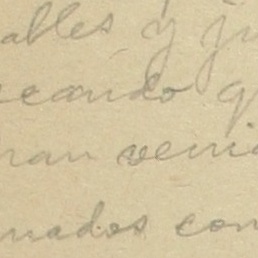 ables y ju
eando q
ran veni
nados con